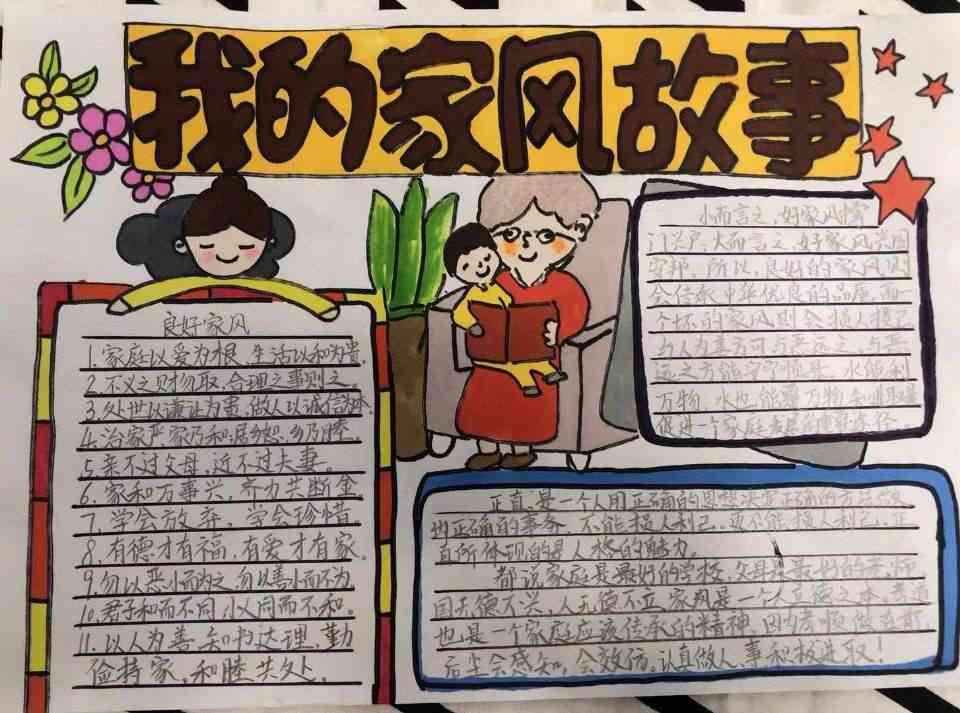 我的家风故事
良好家风
1.家庭以爱为根,生活以和为贵。
2.不义之财勿取,合理之事则之。
3.处世以谦让为贵,做人以诚信为本。
4.治家严家乃和;居乡恕,乡乃睦。
5.亲不过父母,近不过夫妻。
6.家和万事兴,齐力共断金。
7.学会放弃,学会珍惜。
8.有德才有福,有爱才有家。
9.勿以恶小而为之,勿以善小而不为。
10.君子和而不同,小人同而不和。
11.以人为善,知书达理,勤
俭持家,和睦共处。
小而言之,好家风
门兴户,大而言之,好家风兴国
安邦,所以,良好的家风
会传承中华优良的品质,而一
个坏的家风则会损人
与人为善方可与
远之方能
万物,水也能
促进一个家庭发展的
正直,是一个人用正确的思想决定正确的
也正确的事务,不能损人利己,更不能损人利己,正
直所体现的是人格的魅力。
都说家庭是最好的学校,父母是最好的老师
国无德不兴,人无德不立,家风是一个人立德之本,孝道
也是一个家庭应该传承的精神,因为孝顺
后尘会感知,会效仿,认真做人、事积极进取!